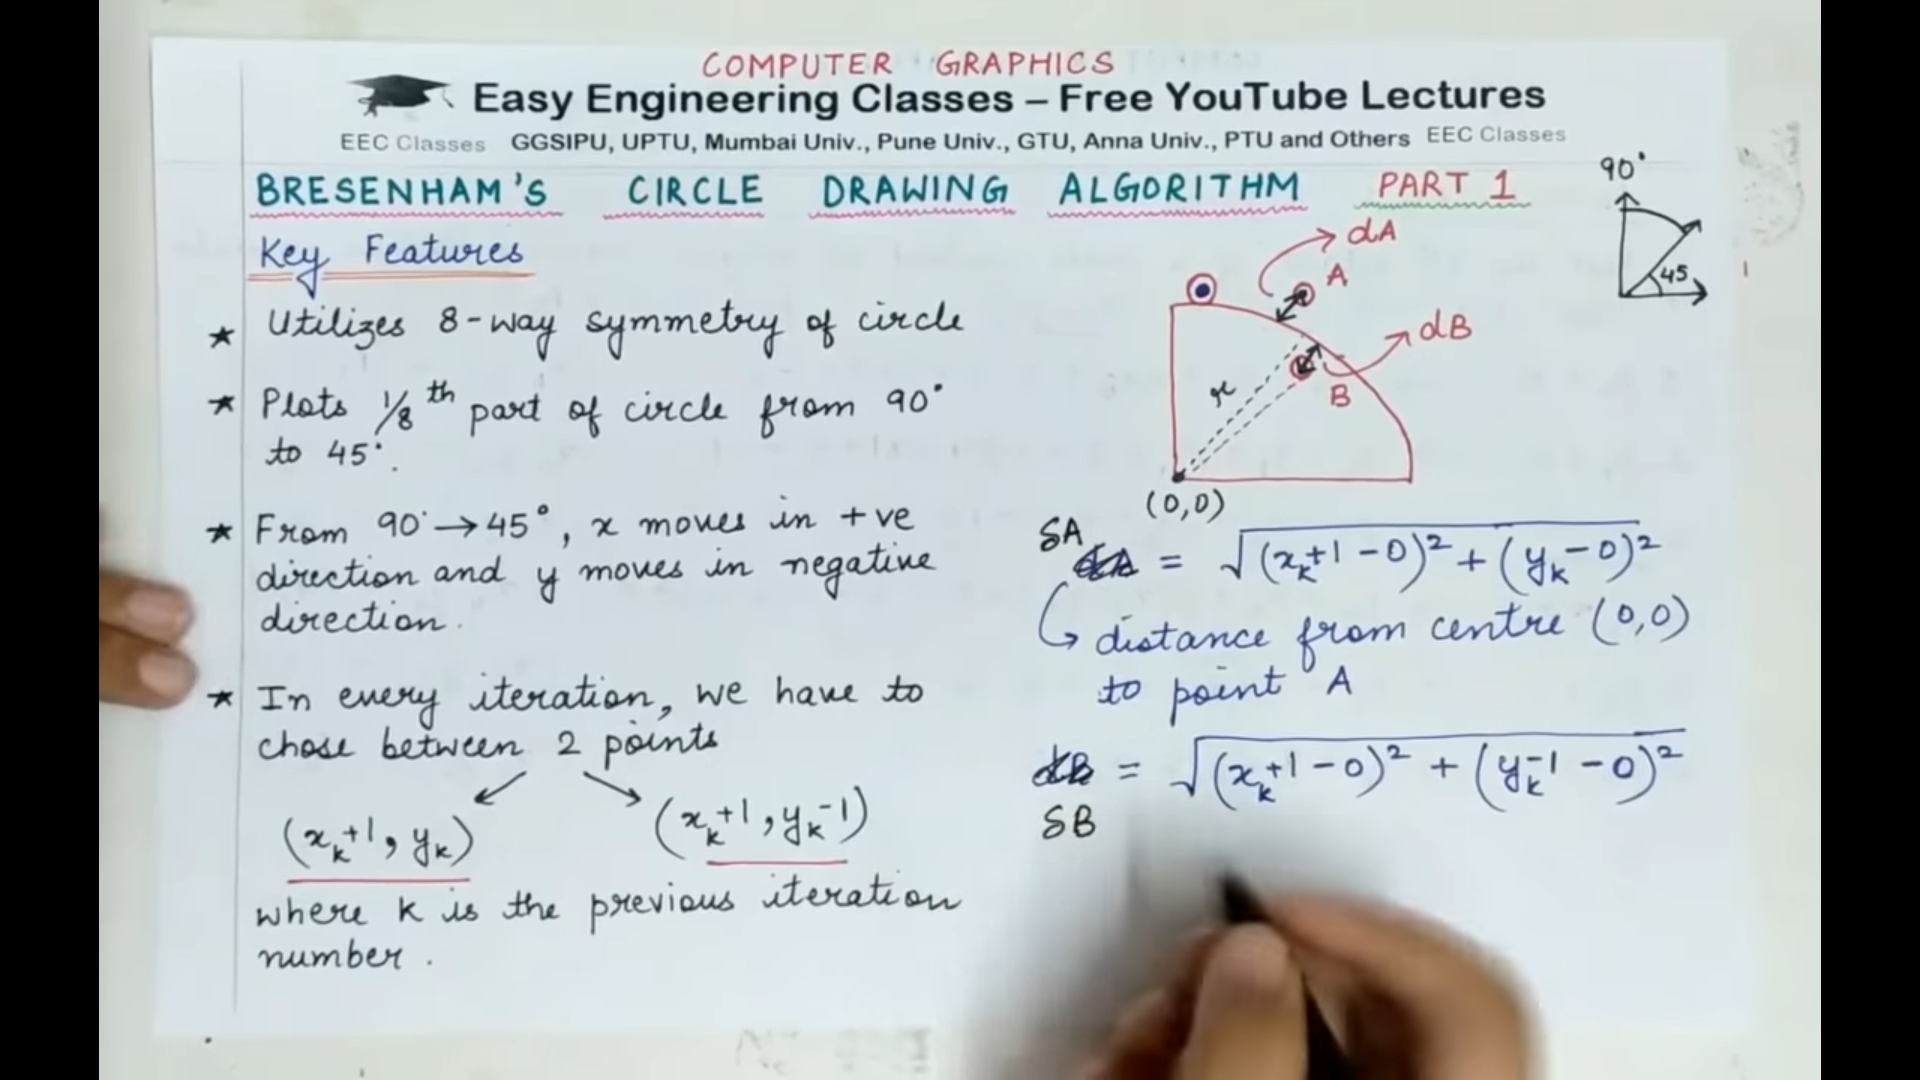 COMPUTER GRAPHICS
Easy Engineering Classes – Free YouTube Lectures
EEC Classes GGSIPU, UPTU, Mumbai Univ., Pune Univ., GTU, Anna Univ., PTU and Others EEC Classes
BRESENHAM'S CIRCLE DRAWING ALGORITHM PART 1
Key Features
★ Utilizes 8-way symmetry of circle
★ Plots 1/8th part of circle from 90°
to 45°.
★ From 90°→45°, x moves in +ve
direction and y moves in negative
direction.
★ In every iteration, we have to
chose between 2 points
(xₖ+1, yₖ) (xₖ+1, yₖ-1)
where k is the previous iteration
number.
90°
45
dA
A
dB
B
r
(0,0)
SA
dA = √(xₖ+1-0)² + (yₖ-0)²
distance from centre (0,0)
to point A
dB = √(xₖ+1-0)² + (yₖ-1-0)²
SB